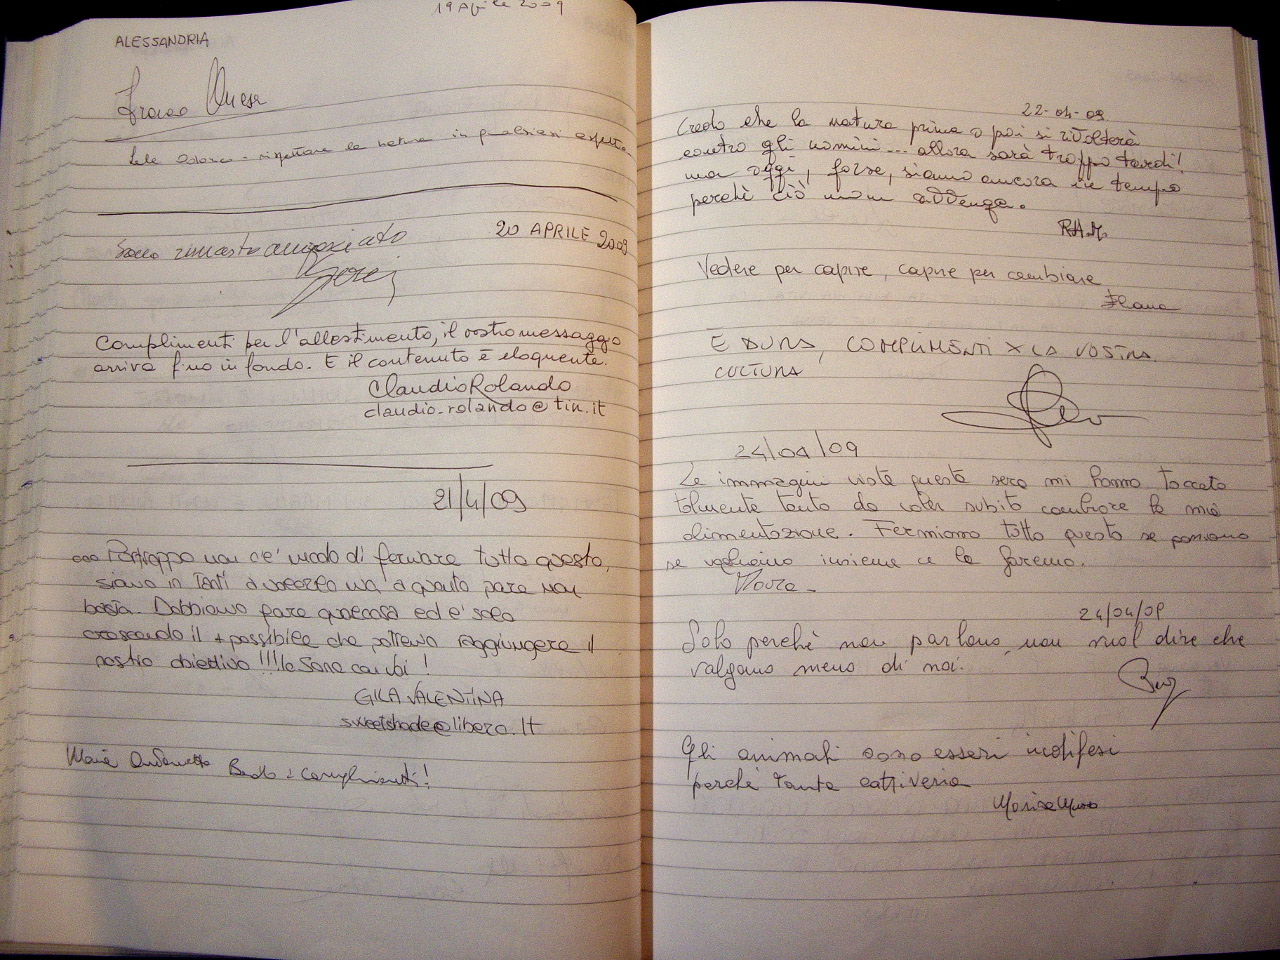 19 Aprile 2009
ALESSANDRIA
rispettare la natura in qualsiasi aspetto
20 APRILE 2009
Sono rimasto angosciato
Complimenti per l'allestimento, il vostro messaggio
arriva fino in fondo. E il contenuto è eloquente.
Claudio Rolando
claudio.rolando@tin.it
21/4/09
ooo Purtroppo non c'è modo di fermare tutto questo,
siamo in tanti a volerlo ma, a quanto pare non
basta. Dobbiamo fare qualcosa ed e' solo
crescendo il + possibile che potremo raggiungere il
nostro obiettivo !!! Io sono con voi !
GILA VALENTINA
sweetshade@libero.it
Maria Antonietta complimenti!
22-04-09
Credo che la natura prima o poi si rivolterà
contro gli uomini... allora sarà troppo tardi!
ma oggi, forse, siamo ancora in tempo
perchè ciò non avvenga.
RAM
Vedere per capire, capire per cambiare
Ilana
È DURA, COMPLIMENTI X LA VOSTRA
CULTURA
24/04/09
Le immagini viste questa sera mi hanno toccato
talmente tanto da voler subito cambiare la mia
alimentazione. Fermiamo tutto questo se possiamo
se vogliamo insieme ce la faremo.
24/04/09
Solo perchè non parlano, non vuol dire che
valgano meno di noi.
Gli animali sono esseri indifesi
perchè tanta cattiveria